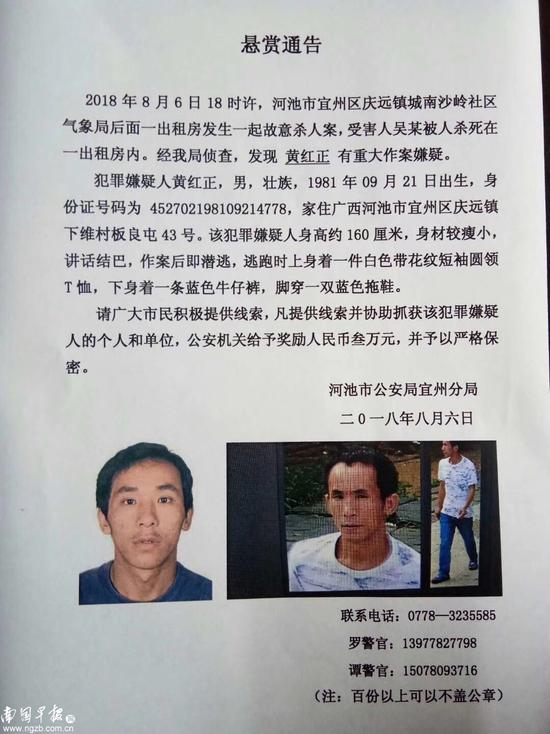 悬赏通告
2018 年 8 月 6 日 18 时许，河池市宜州区庆远镇城南沙岭社区
气象局后面一出租房发生一起故意杀人案，受害人吴某被人杀死在
一出租房内。经我局侦查，发现 黄红正 有重大作案嫌疑。
犯罪嫌疑人黄红正，男，壮族，1981 年 09 月 21 日出生，身
份证号码为 452702198109214778，家住广西河池市宜州区庆远镇
下维村板良屯 43 号。该犯罪嫌疑人身高约 160 厘米，身材较瘦小，
讲话结巴，作案后即潜逃，逃跑时上身着一件白色带花纹短袖圆领
T 恤，下身着一条蓝色牛仔裤，脚穿一双蓝色拖鞋。
请广大市民积极提供线索，凡提供线索并协助抓获该犯罪嫌疑
人的个人和单位，公安机关给予奖励人民币叁万元，并予以严格保
密。
河池市公安局宜州分局
二0一八年八月六日
联系电话：0778—3235585
罗警官：13977827798
谭警官：15078093716
（注：百份以上可以不盖公章）
南国早报网
www.ngzb.com.cn